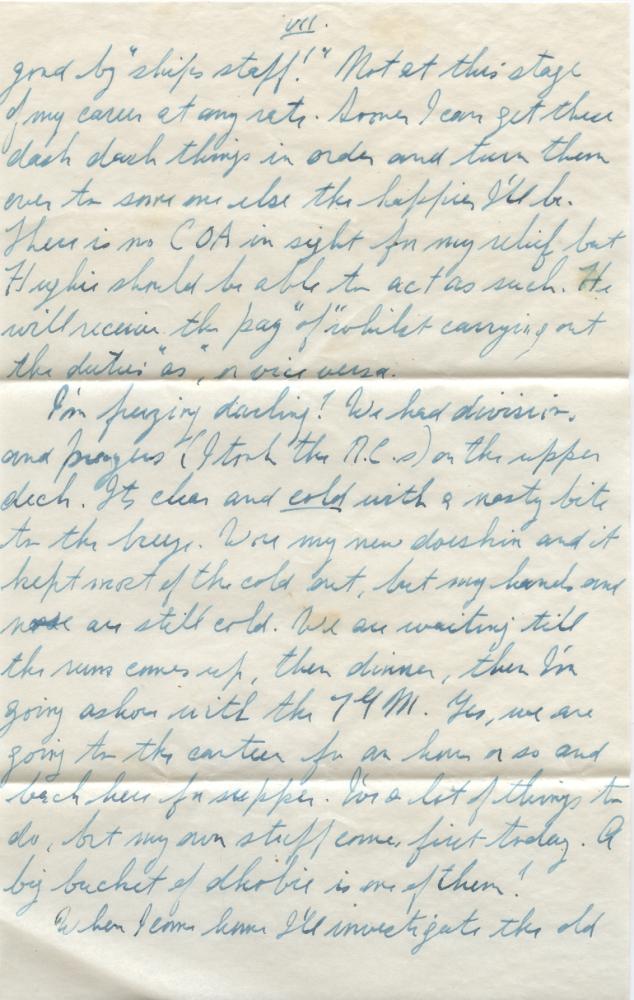 vii.
good by "ships staff!" Not at this stage
of my career at any rate. Sooner I can get these
dash dash things in order and turn them
over to some one else the happier I'll be.
There is no COA in sight for my relief but
Hughie should be able to act as such. He
will receive the pay "of" whilst carrying out
the duties "as", or vice versa.
I'm freezing darling! We had divisions
and prayers (I took the R.C.s) on the upper
deck. Its clear and cold with a nasty bite
to the breeze. Wore my new doeskin and it
kept most of the cold out, but my hands and
nose are still cold. We are waiting till
the rum comes up, then dinner, then I'm
going ashore with the M. Yes, we are
going to the canteen for an hour or so and
back here for supper. I've a lot of things to
do, but my own stuff comes first today. A
big bucket of dhobie is one of them!
When I come home I'll investigate the old